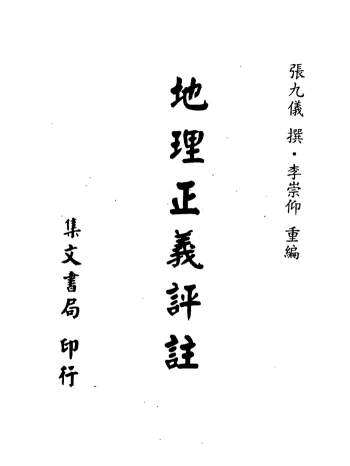 張九儀 撰・李崇仰 重編
地理正義評註
集文書局 印行